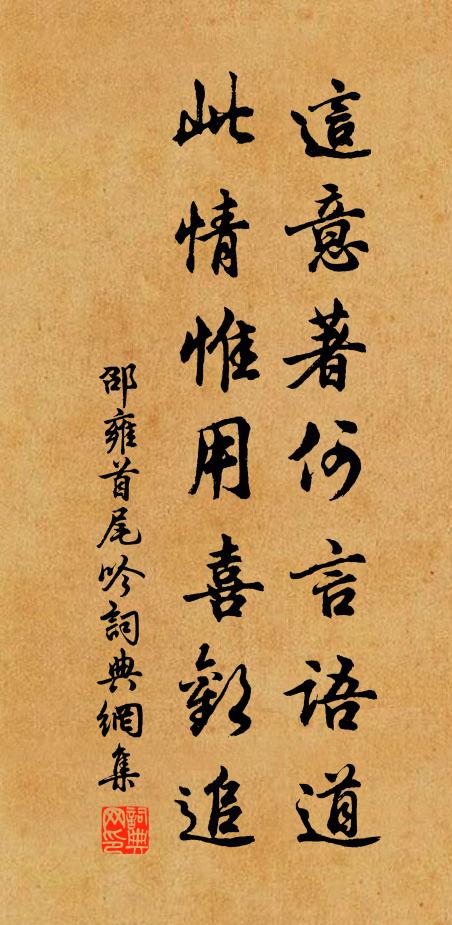 這意著何言語道
此情惟用喜歡追
邵雍首尾吟詞典網集
詞典网印